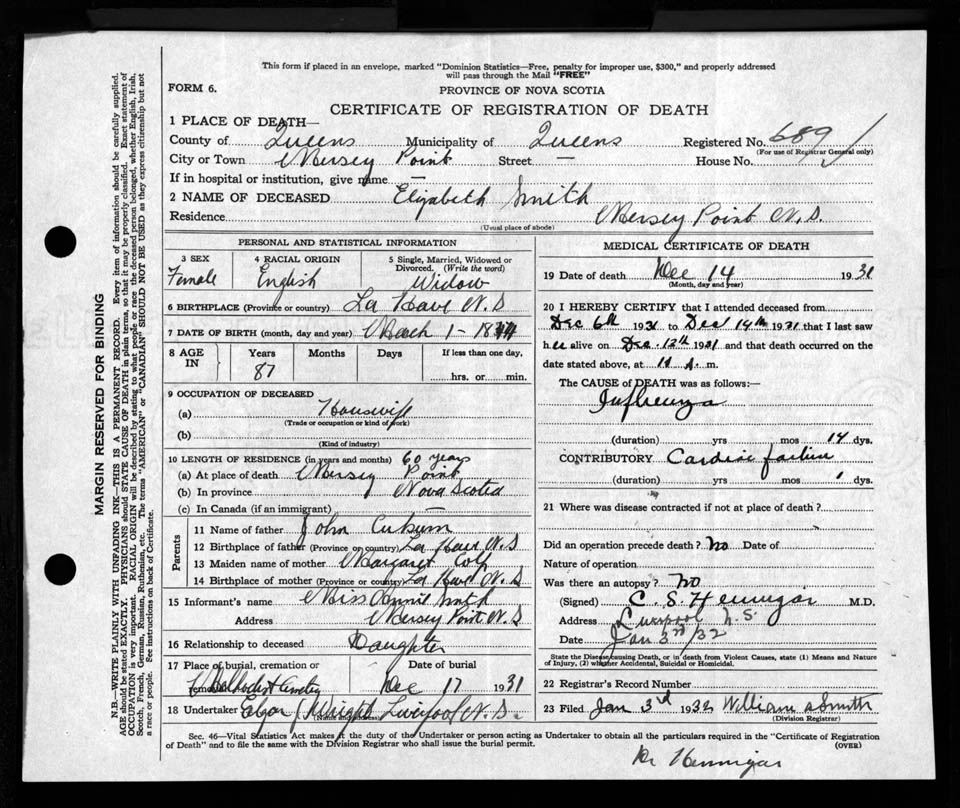 This form if placed in an envelope, marked "Dominion Statistics—Free, penalty for improper use, $300," and properly addressed
will pass through the Mail "FREE"
FORM 6.
PROVINCE OF NOVA SCOTIA
CERTIFICATE OF REGISTRATION OF DEATH
1 PLACE OF DEATH—
County of Queens Municipality of Queens Registered No. 689
(For use of Registrar General only)
City or Town Mersey Point Street — House No.
If in hospital or institution, give name —
2 NAME OF DECEASED Elizabeth Smith
Residence Mersey Point N.S.
(Usual place of abode)
PERSONAL AND STATISTICAL INFORMATION
3 SEX 4 RACIAL ORIGIN 5 Single, Married, Widowed or
Divorced. (Write the word)
Female English Widow
6 BIRTHPLACE (Province or country) La Have N.S
7 DATE OF BIRTH (month, day and year) March 1-
8 AGE IN Years Months Days If less than one day,
87 hrs. or min.
9 OCCUPATION OF DECEASED
(a) Housewife
(Trade or occupation or kind of work)
(b)
(Kind of industry)
10 LENGTH OF RESIDENCE (in years and months) 60 years
(a) At place of death Mersey Point
(b) In province Nova Scotia
(c) In Canada (if an immigrant) —
Parents
11 Name of father John
12 Birthplace of father (Province or country) La Have N.S
13 Maiden name of mother Margaret
14 Birthplace of mother (Province or country) La Have N.S
15 Informant's name Miss Annie Smith
Address Mersey Point N.S
16 Relationship to deceased Daughter
17 Place of burial, cremation or removal Date of burial
Methodist Cemetery Dec 17 1931
18 Undertaker Wright Liverpool N.S.
(Name and address)
MEDICAL CERTIFICATE OF DEATH
19 Date of death Dec 14 1931
(Month, day and year)
20 I HEREBY CERTIFY that I attended deceased from
Dec 6th 1931 to Dec 14th 1931 that I last saw
h er alive on Dec. 12th 1931 and that death occurred on the
date stated above, at m.
The CAUSE of DEATH was as follows:—
Influenza
(duration) yrs mos 14 dys.
CONTRIBUTORY Cardiac failure
(duration) yrs mos 1 dys.
21 Where was disease contracted if not at place of death?
Did an operation precede death? No Date of
Nature of operation
Was there an autopsy? No
(Signed) C. S. Hennigar M.D.
Address Liverpool N.S.
Date Jan 3rd/32
State the Disease causing Death, or in death from Violent Causes, state (1) Means and
Nature of Injury, (2) whether Accidental, Suicidal or Homicidal.
22 Registrar's Record Number
23 Filed Jan 3rd 1932 William Smith
(Division Registrar)
Sec. 46—Vital Statistics Act makes it the duty of the Undertaker or person acting as Undertaker to obtain all the particulars required in the "Certificate of Registration
of Death" and to file the same with the Division Registrar who shall issue the burial permit.
(OVER)
Dr Hennigar
MARGIN RESERVED FOR BINDING
N.B.—WRITE PLAINLY WITH UNFADING INK—THIS IS A PERMANENT RECORD. Every item of information should be carefully supplied.
AGE should be stated EXACTLY. PHYSICIANS should STATE CAUSE OF DEATH in plain terms, so that it may be properly classified. Exact statement of
OCCUPATION is very important. RACIAL ORIGIN will be described by stating to what people or race the deceased person belonged, whether English, Irish,
Scotch, French, German, Russian, Ruthenian, etc. The terms "AMERICAN" or "CANADIAN" SHOULD NOT BE USED as they express citizenship but not
a race or people. See instructions on back of Certificate.